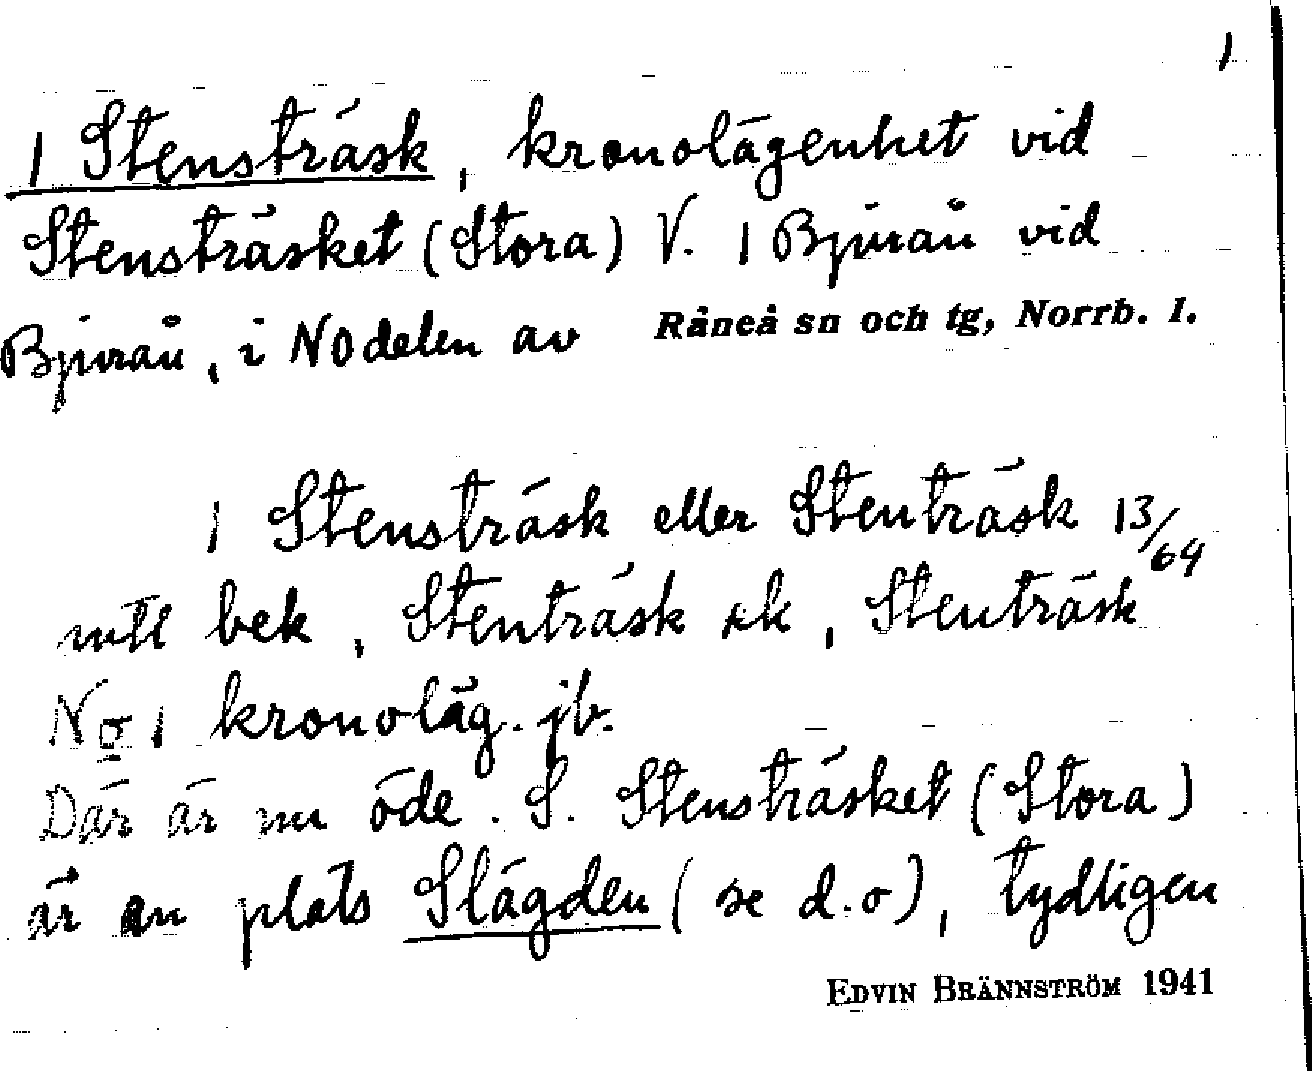 1
1 Stensträsk, kronolägenhet vid
Stensträsket (Stora) V. 1 Bjurån vid
Bjurån, i NO delen av Råneå sn och tg, Norrb. l.
1 Stensträsk eller Stenträsk 13/64
mtl bek, Stenträsk rk, Stenträsk
No 1 kronoläg. jb.
Där är nu öde. S. Stensträsket (Stora)
är en plats Slägden (se d.o), tydligen
EDVIN BRÄNNSTRÖM 1941